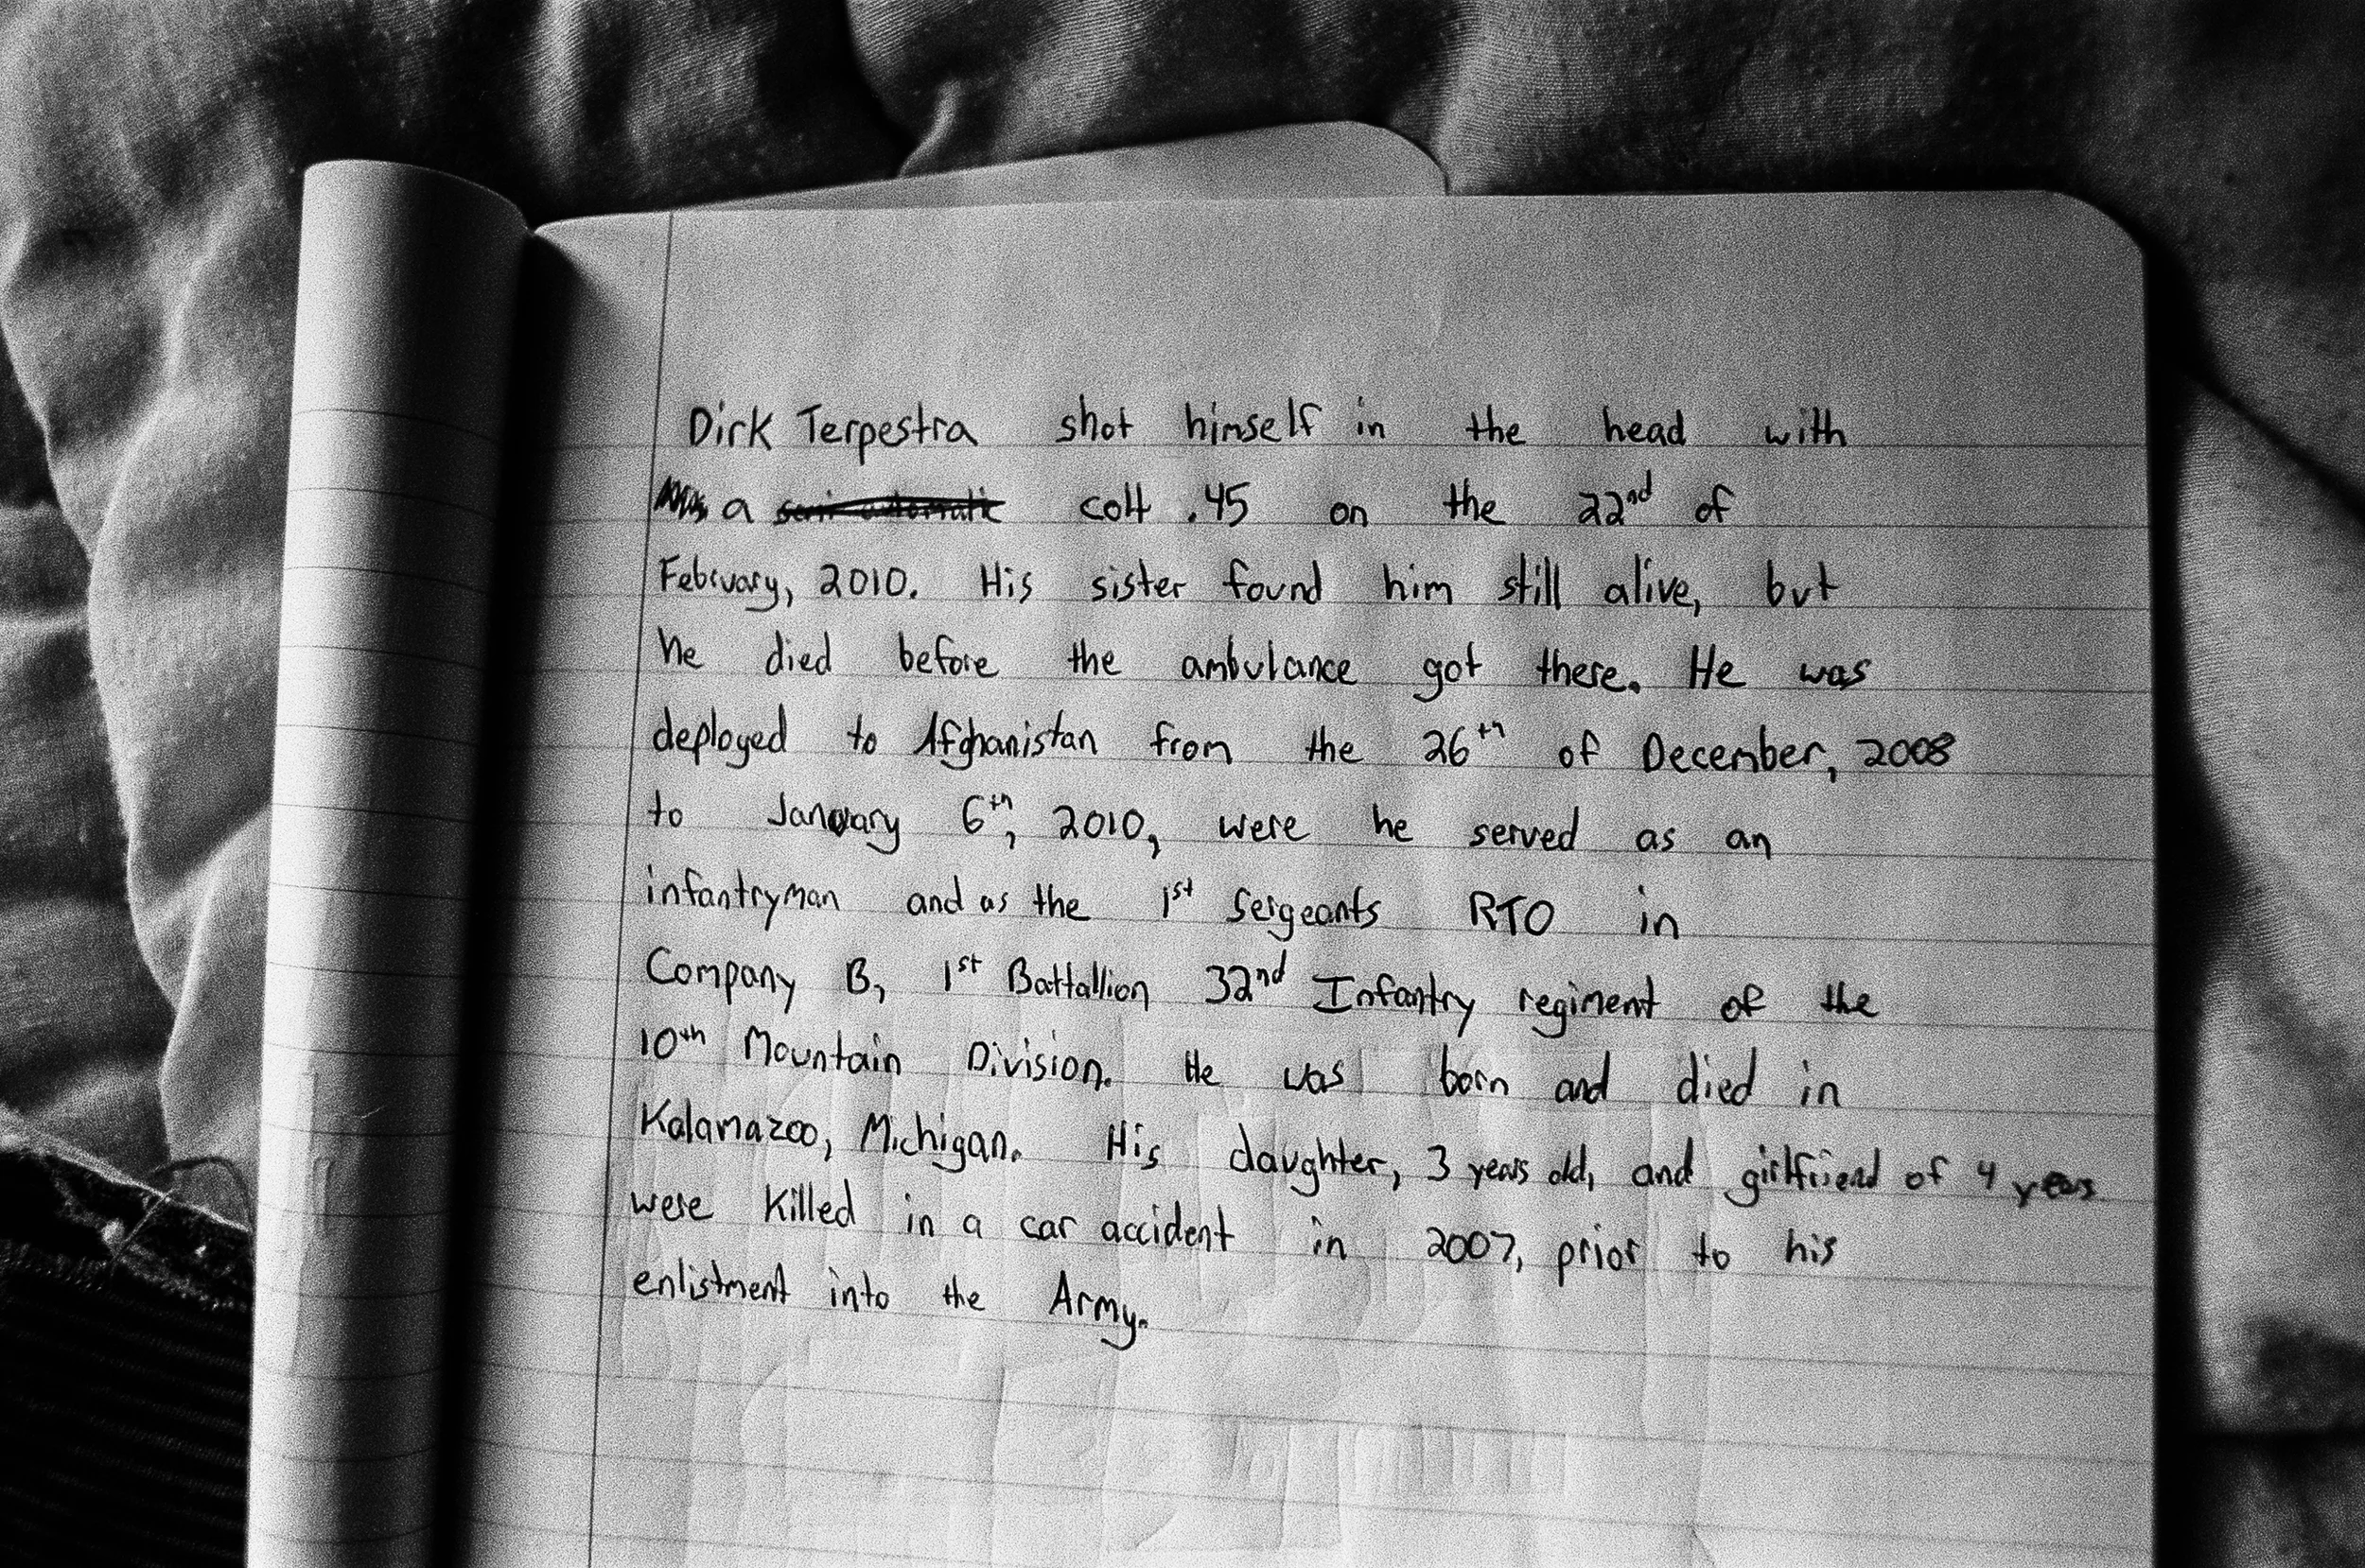 Dirk Terpestra shot himself in the head with
a semi automatic colt .45 on the 22nd of
February, 2010. His sister found him still alive, but
he died before the ambulance got there. He was
deployed to Afghanistan from the 26th of December, 2008
to January 6th, 2010, were he served as an
infantryman and as the 1st Sergeants RTO in
Company B, 1st Battallion 32nd Infantry regiment of the
10th Mountain Division. He was born and died in
Kalamazoo, Michigan. His daughter, 3 years old, and girlfriend of 4 years
were killed in a car accident in 2007, prior to his
enlistment into the Army.